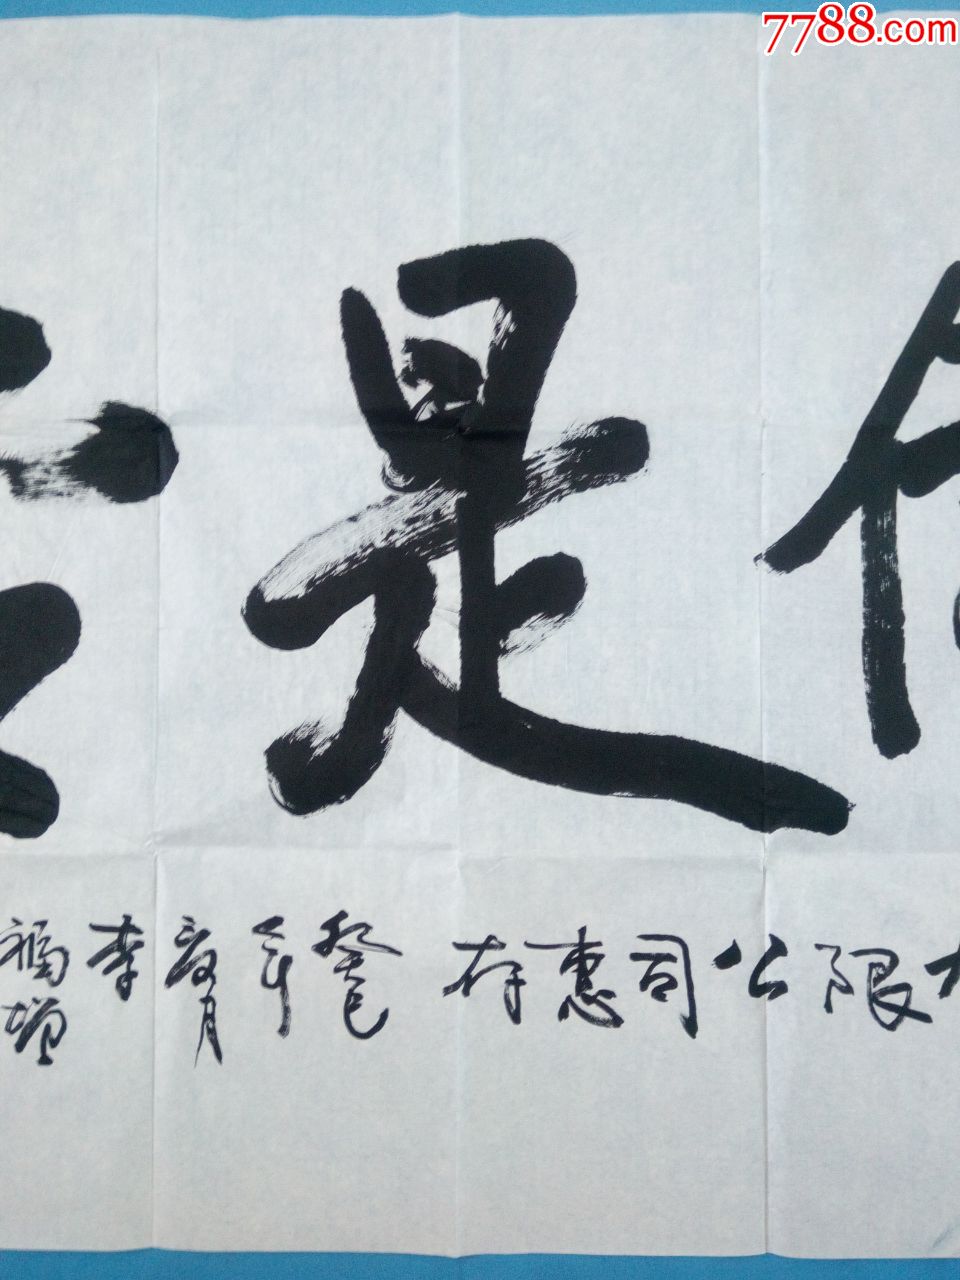 7788.com
是
限公司惠存
癸巳年夏月
李福增